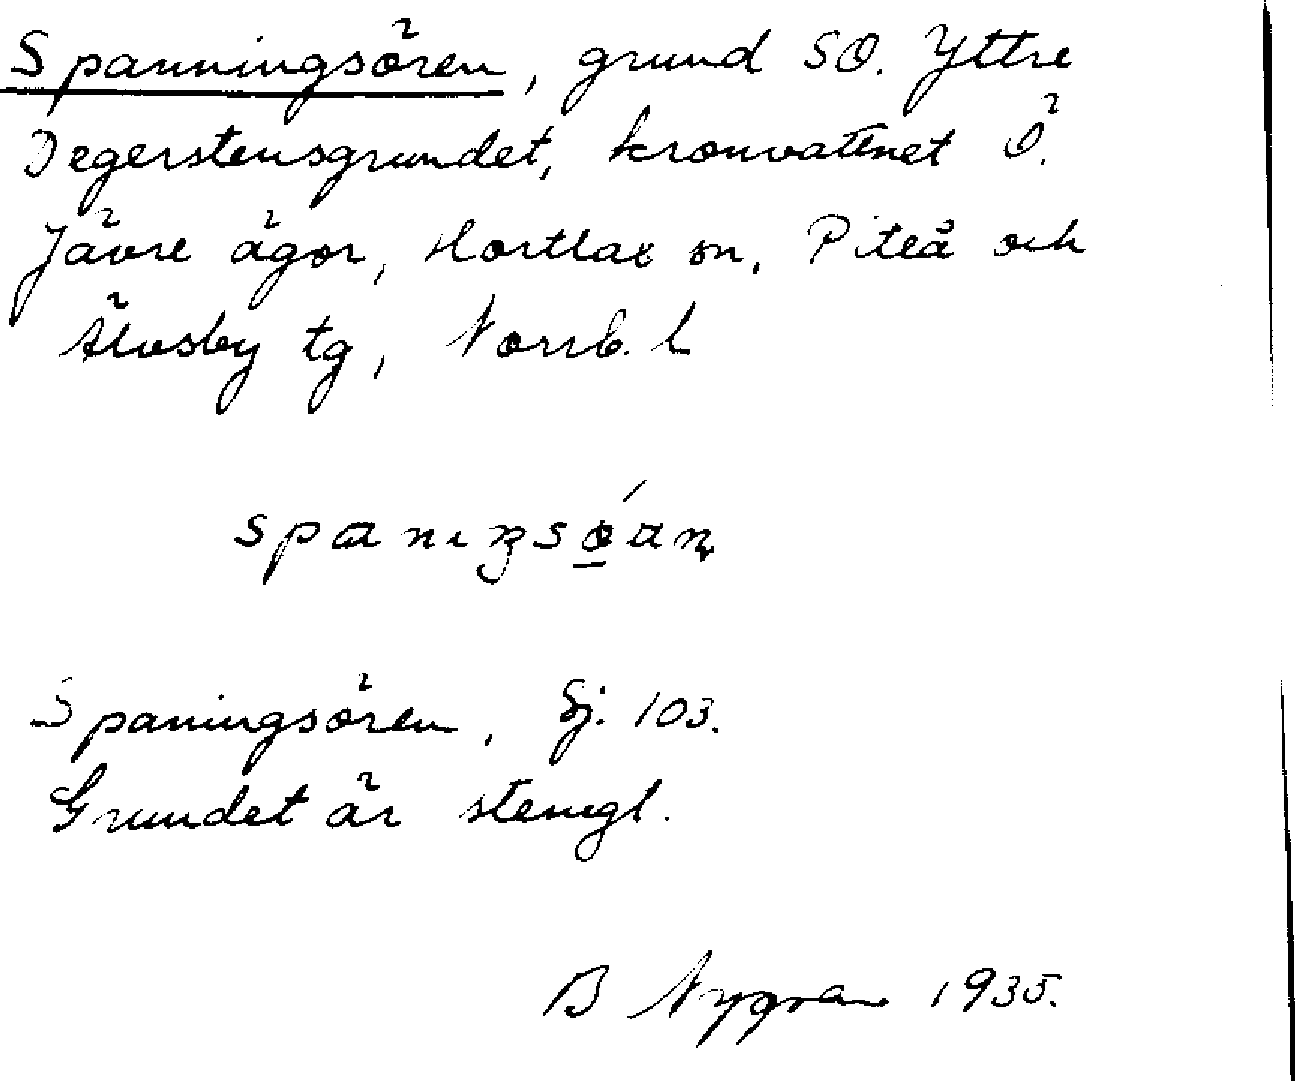 Spanningsören, grund SO. Yttre
Degerstensgrundet, kronvattnet Ö.
Jävre ägor, Hortlax sn, Piteå och
Älvsby tg, Norrb. l
Spaningsören, Sj. 103.
Grundet är stenigt.
B Nygren 1935.